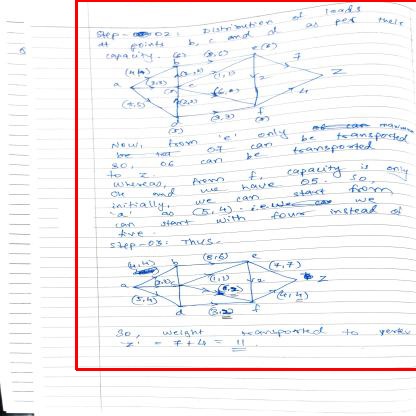 Step-02: Distribution of loads
at points b, c and d as per their
capacity.
a
Z
d
f
7
4
Now, from 'e' only
07 can be transported
so, 06 can be transported
to z.
Whereas, from f, capacity is only
04 and we have 05. So,
initially, we can start from
'a' as (5,4). i.e. we
can start with four instead of
five.
Step-03: Thus.
b
(6,6)
e
(7,7)
a
(1,1)
2
Z
(5,4)
(4,4)
d
(3,2)
f
So, weight transported to vertex
'z' = 7+4 = 11